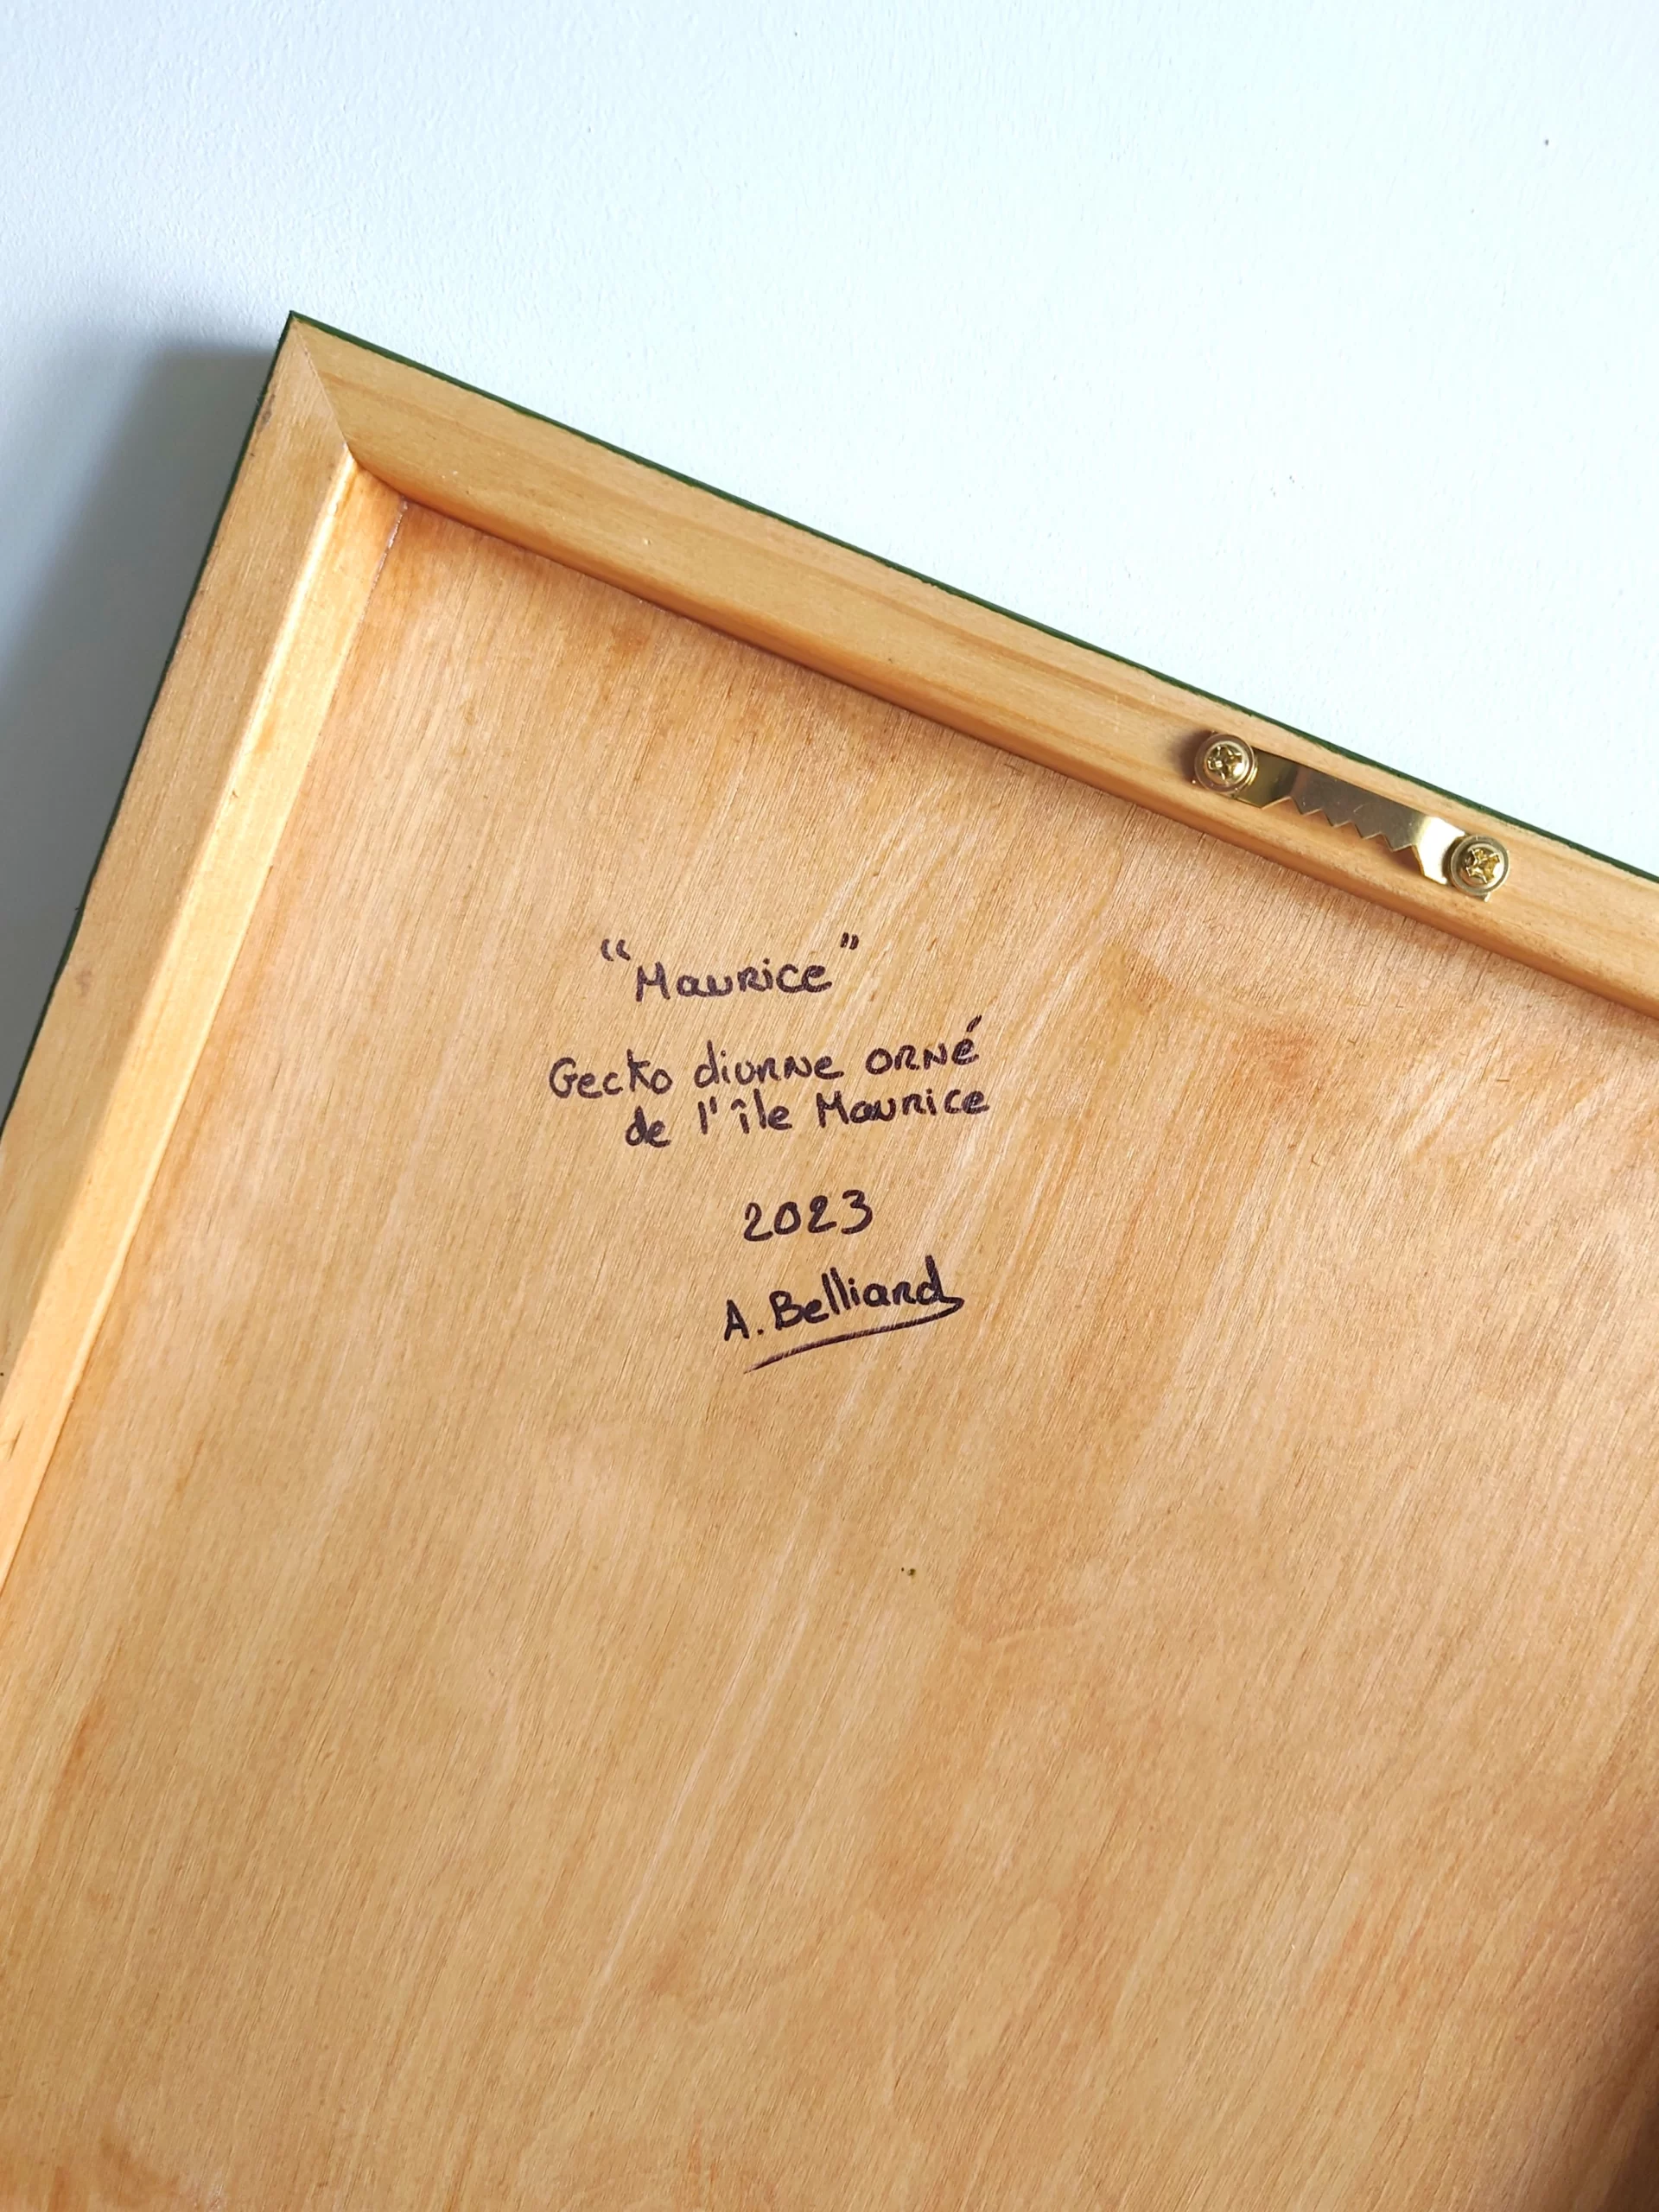 “Maurice”
Gecko diurne orné
de l'île Maurice
2023
A. Belliard